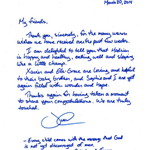 March 20, 2014
My friends,
Thank you, sincerely, for the many warm
wishes we have received in the past few weeks.
I am delighted to tell you that Hadrien
is happy and healthy, eating well and sleeping
like a little champ.
Xavier and Ella-Grace are loving and helpful
to their baby brother, and Sophie and I are yet
again filled with wonder and hope.
Thanks again for having taken a moment
to share your congratulations. We are truly
touched.
- Every child comes with the message that God
is not yet discouraged of man.